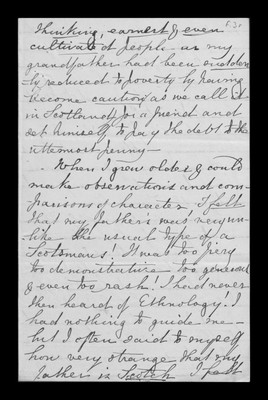 thinking, earnest & even
cultivated people as my
grandfather had been suddenly
-ly reduced to poverty by having
become caution as we call it
in Scotland, for a friend and
set himself to pay the debt to the
uttermost penny—
When I grew older & could
make observations and com-
parisons of character, I felt
that my father was very un-
like the usual type of a
Scotsman! It was too fiery
too demonstrative too generous
& even too rash! I had never
then heard of Ethnology! I
had nothing to guide me—
but I often said to myself
how very strange that my
father is Scotch I felt